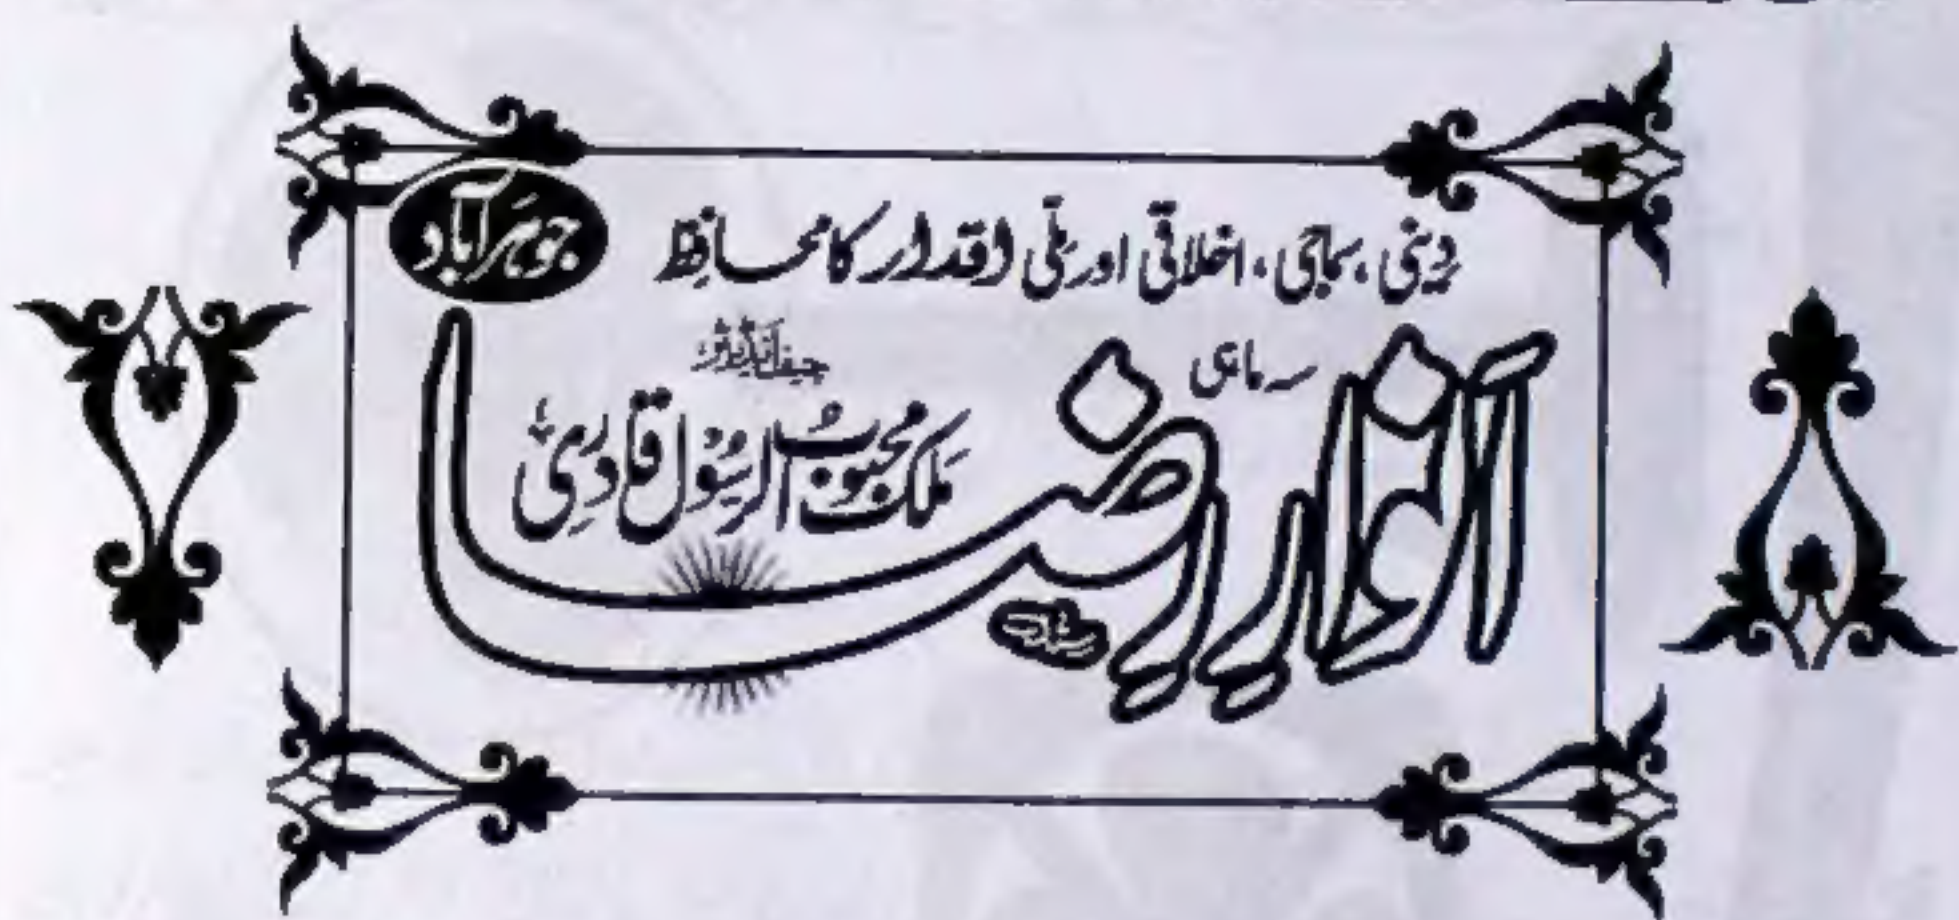 دینی، سماجی، اخلاقی اور ملّی اقدار کا محافظ
جوہر آباد
سہ ماہی
انوارِ رضا
چیف ایڈیٹر
ملک محبوب الرسول قادری